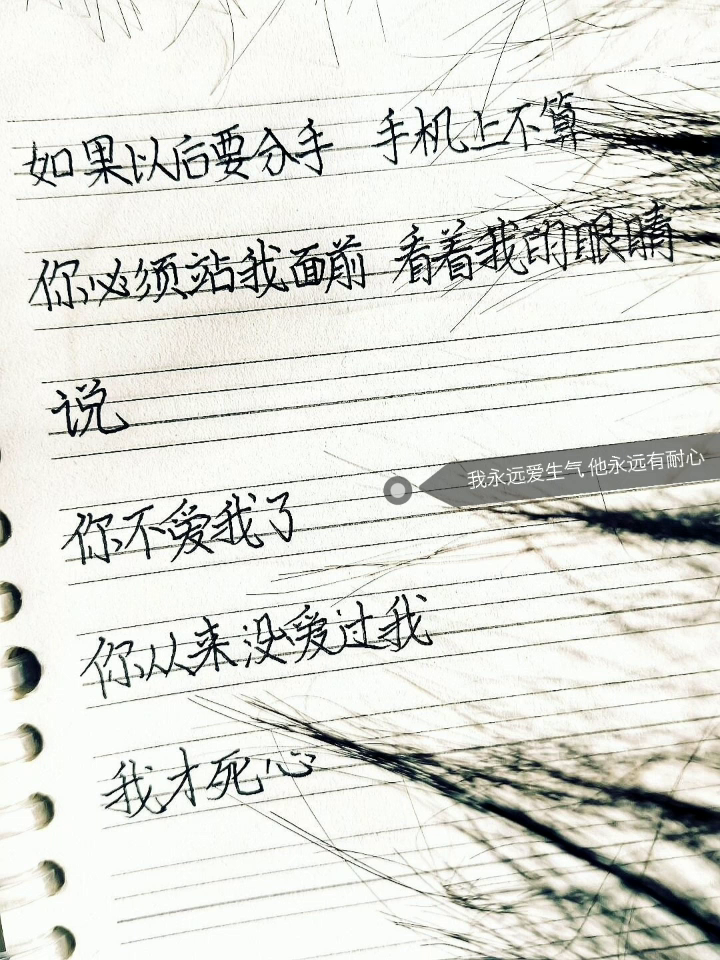 如果以后要分手 手机上不算
你必须站我面前 看着我的眼睛
说
我永远爱生气 他永远有耐心
你不爱我了
你从来没爱过我
我才死心